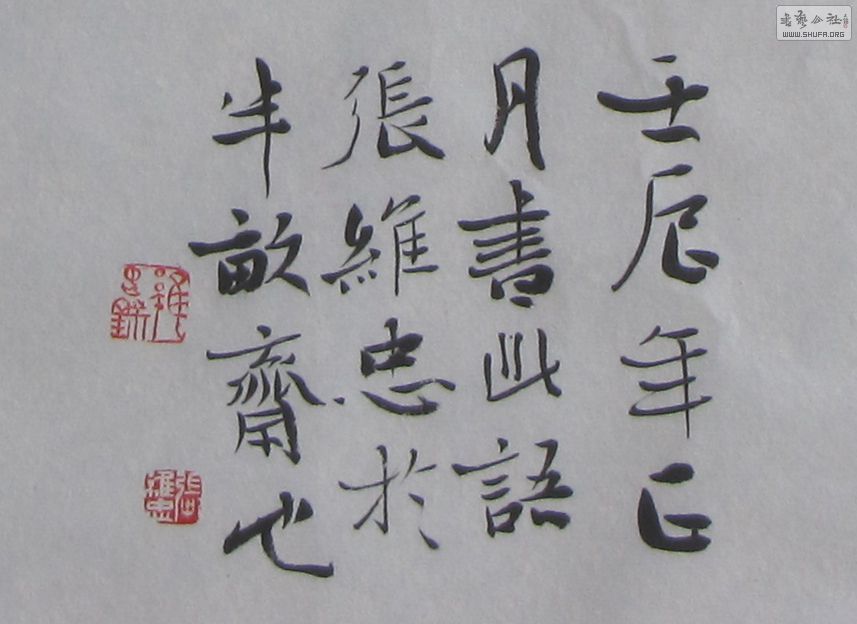 壬辰年正
月書此語
張維忠於
半畝齋也
張維忠
書藝公社
WWW.SHUFA.ORG